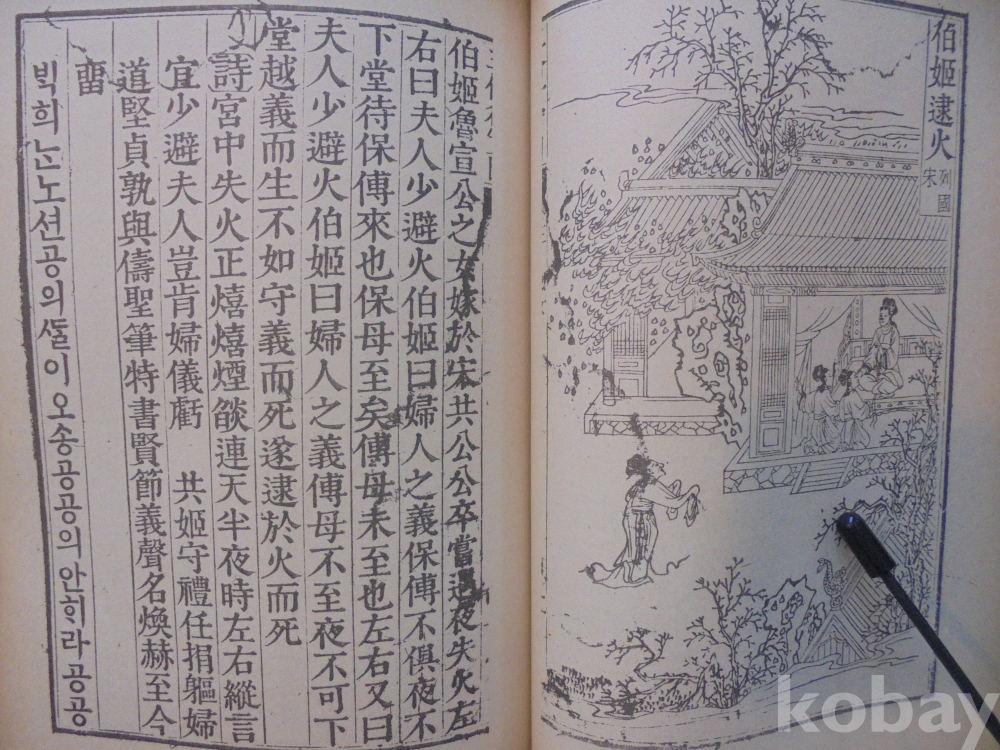 伯姬逮火
列國
宋
伯姬魯宣公之女嫁於宋共公公卒嘗遇夜失火左
右曰夫人少避火伯姬曰婦人之義保傅不俱夜不
下堂待保傅來也保母至矣傅母未至也左右又曰
夫人少避火伯姬曰婦人之義傅母不至夜不可下
堂越義而生不如守義而死遂逮於火而死
詩宮中失火正熺熺煙燄連天半夜時左右縱言
宜少避夫人豈肯婦儀虧 共姬守禮任捐軀婦
道堅貞孰與儔聖筆特書賢節義聲名煥赫至今
畱
빅희ᄂᆞᆫ노션공의ᄯᆞᆯ이오송공공의안ᄒᆡ라공공
kobay